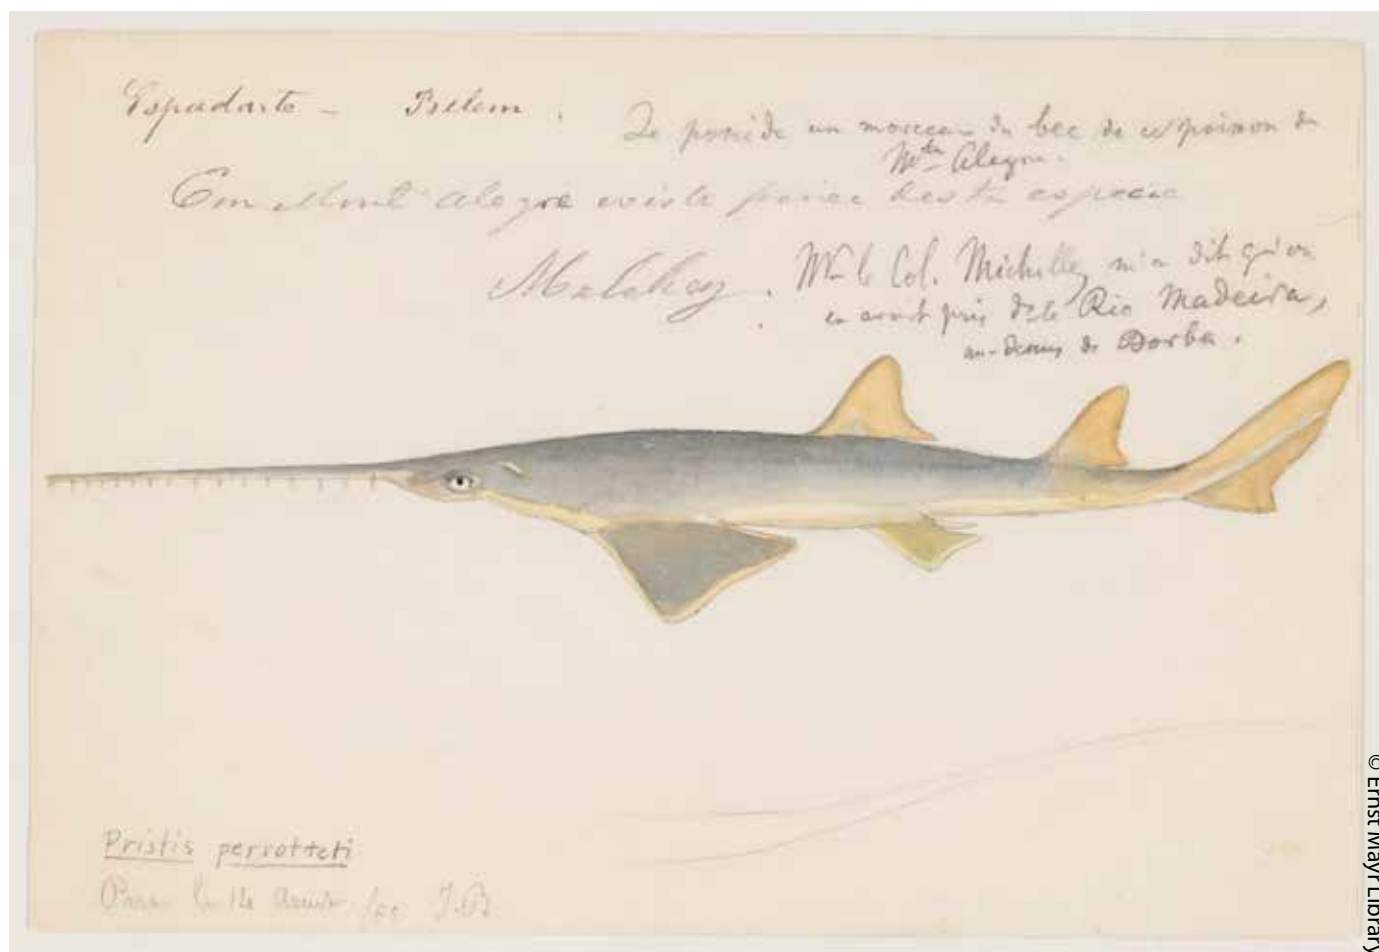 Espadarte - Belem.
Je possède un morceau du bec de ce poisson de
Mte Alegre.
Em Mont Alegre existe desta especie
Mr le Col. m'a dit qu'on
en avait pris ds le Rio Madeira,
au-dessus de Borba.
Pristis perrotteti
Para J.B.
© Ernst Mayr Library